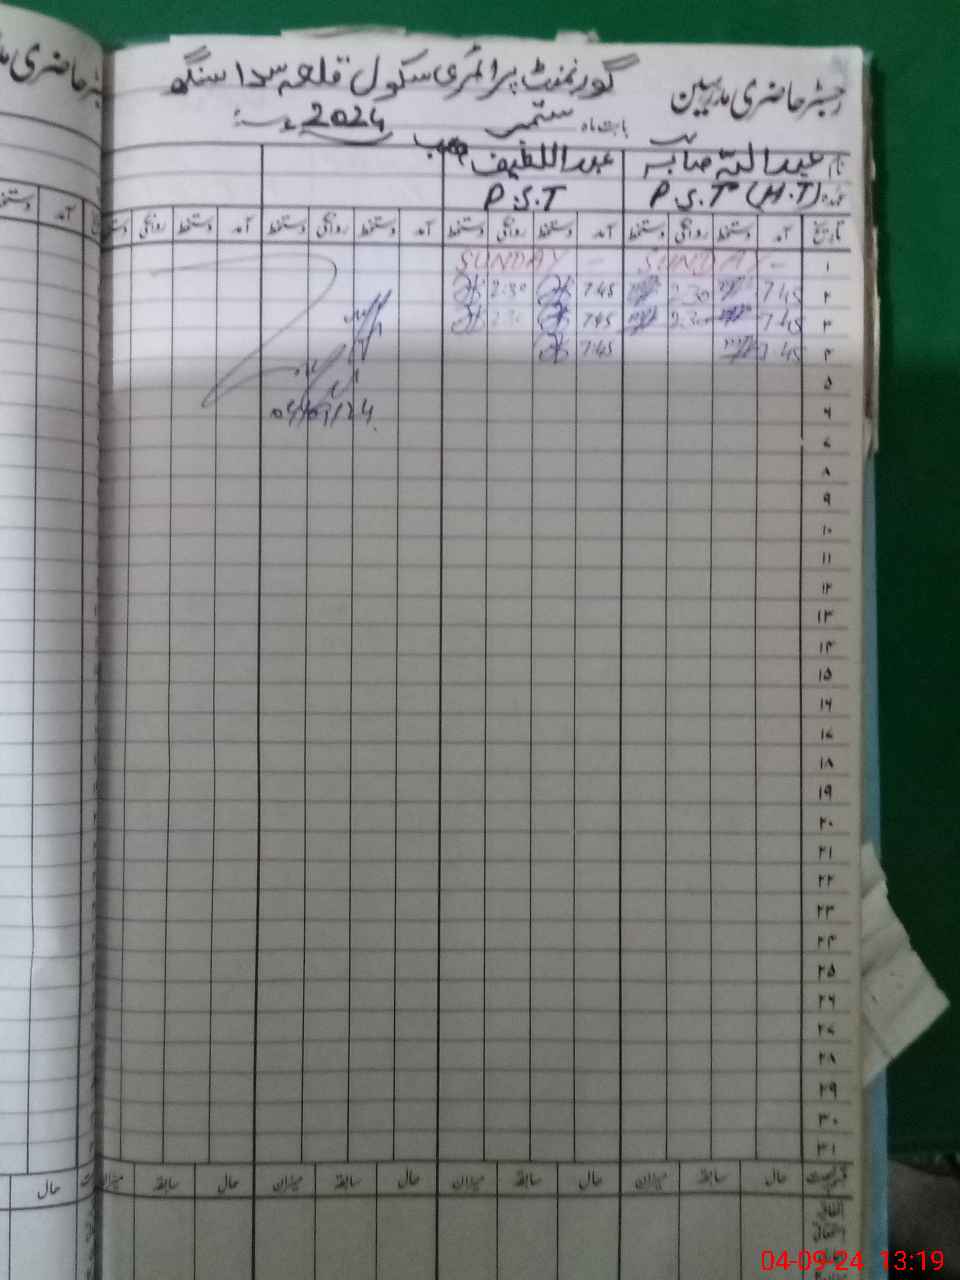 رجسٹر حاضری مدرسین گورنمنٹ پرائمری سکول قلعہ سدا سنگھ
بابت ماہ ستمبر 2024ء
نام عبداللہ صاب عبداللطیف صاحب
عہدہ P.S.T (H.T) P.S.T
تاریخ آمد دستخط روانگی دستخط آمد دستخط روانگی دستخط آمد دستخط روانگی دستخط آمد دستخط روانگی دستخط
۱ SUNDAY - SUNDAY -
۲ 7:45 2:30 7:45 2:30
۳ 7:45 2:30 7:45 2:30
۴ 7:45 7:45
۵
۶ 04/09/24
۷
۸
۹
۱۰
۱۱
۱۲
۱۳
۱۴
۱۵
۱۶
۱۷
۱۸
۱۹
۲۰
۲۱
۲۲
۲۳
۲۴
۲۵
۲۶
۲۷
۲۸
۲۹
۳۰
۳۱
حال سابقہ میزان حال سابقہ میزان حال سابقہ میزان حال سابقہ میزان
اتفاقی
استحقاقی
رجسٹر حاضری
آمد دستخط
حال
04-09-24 13:19